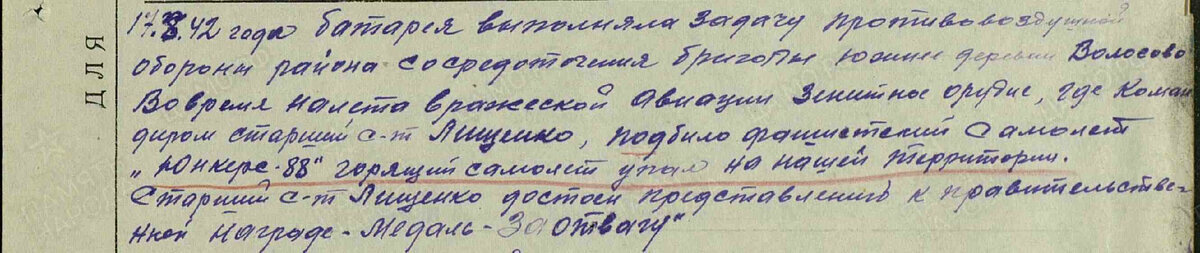 ДЛЯ
17.8.42 года батарея выполняла задачу противовоздушной
обороны района сосредоточения бригады южнее деревни Волосово
Во время налета вражеской авиации зенитное орудие, где коман
диром старший с-т Лищенко, подбило фашистский самолет
„Юнкерс-88" горящий самолет упал на нашей территории.
Старший с-т Лищенко достоен представлений к правительстве-
нной награде - Медаль - За отвагу"